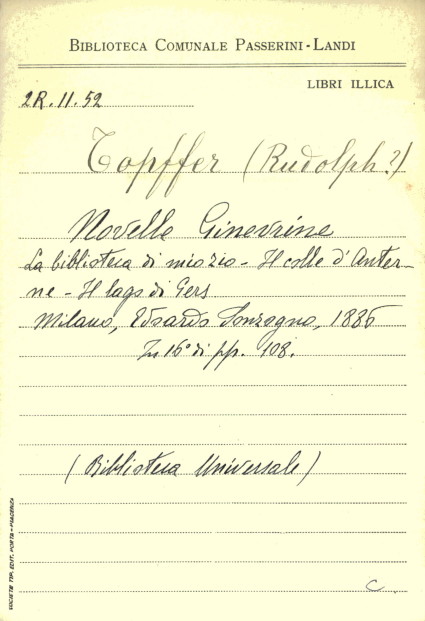 BIBLIOTECA COMUNALE PASSERINI-LANDI
LIBRI ILLICA
2R. 11. 52
Topffer (Rudolph?)
Novelle Ginevrine
La biblioteca di mio zio - Il colle d'Anter-
ne - Il lago di Gers
Milano, Edoardo Sonzogno, 1886
In 16° di pp. 108.
(Biblioteca Universale)
SOCIETÀ TIP. EDIT. PORTA - PIACENZA
C